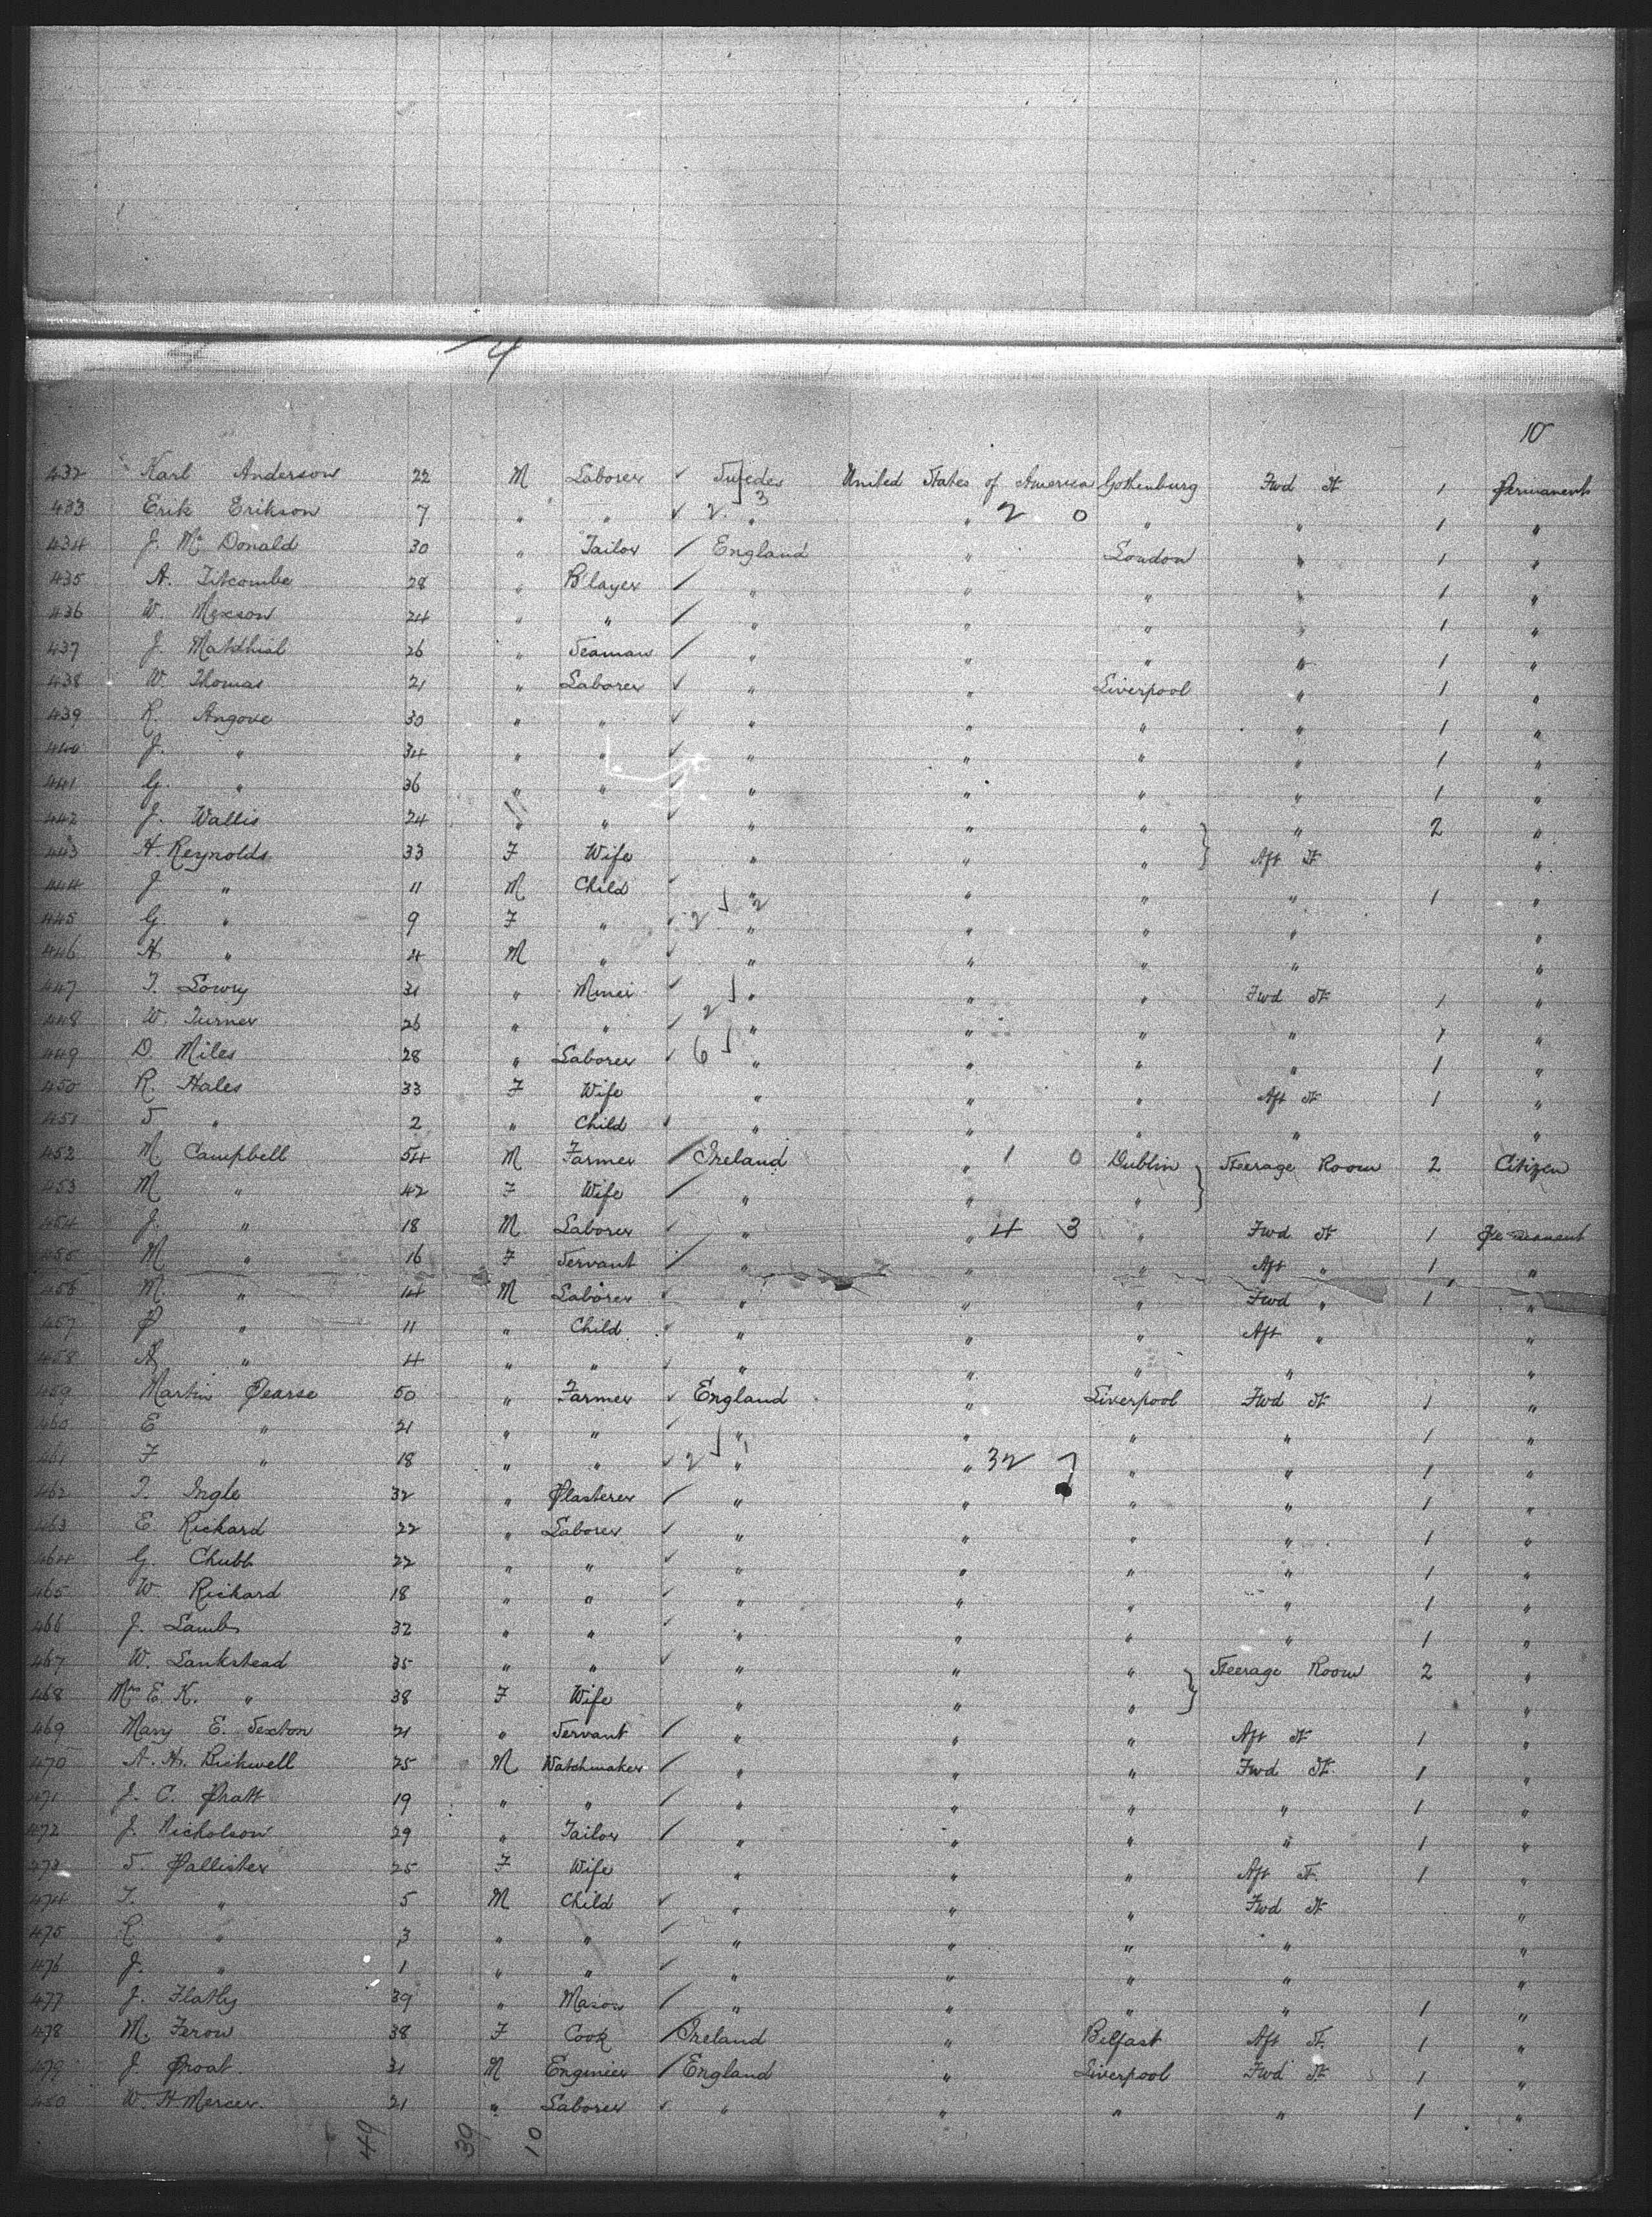 4
10
432 Karl Anderson 22 M Laborer ✓ Swedes United States of America Gothenburg Fwd St 1 Permanent
433 Erik Erikson 7 " " ✓ 2 3 " " 2 0 " " 1 "
434 J. Mc Donald 30 " Tailor / England " London " 1 "
435 A. Titcombe 28 " B layer / " " " " 1 "
436 W. Mexson 24 " " / " " " " 1 "
437 J. 26 " Seaman / " " " " 1 "
438 W. Thomas 21 " Laborer ✓ " " Liverpool " 1 "
439 R. Angove 30 " " ✓ " " " " 1 "
440 J. " 34 " " ✓ " " " " 1 "
441 G. " 36 " " ✓ " " " " 1 "
442 J. Wallis 24 " " ✓ " " " } " 2 "
443 H. Reynolds 33 F Wife " " " } Aft St "
444 J " 11 M Child ✓ " " " " 1 "
445 G. " 9 F " ✓ 2 2 " " " " "
446 H " 4 M " ✓ " " " " "
447 T. Lowry 31 " Miner ✓ " " " Fwd St 1 "
448 W. Turner 26 " " ✓ 2 " " " " 1 "
449 D. Miles 28 " Laborer ✓ 6 " " " " 1 "
450 R. Hales 33 F Wife " " " Aft St 1 "
451 S " 2 " Child ✓ " " " " "
452 M. Campbell 54 M Farmer / Ireland " 1 0 Dublin } Steerage Room 2 Citizen
453 M " 42 F Wife / " " " }
454 J. " 18 M Laborer ✓ " " 4 3 " Fwd St 1 Permanent
455 M " 16 F Servant / " " " Aft " 1 "
456 M. " 14 M Laborer ✓ " " " Fwd " 1 "
457 P " 11 " Child ✓ " " " Aft " "
458 A " 4 " " ✓ " " " " "
459 Martin Pearse 50 " Farmer ✓ England " Liverpool Fwd St 1 "
460 E " 21 " " ✓ " " " " 1 "
461 F " 18 " " ✓ 2 1 " " 32 7 " " 1 "
462 T. Ingle 32 " Plasterer / " " " " 1 "
463 E. Rickard 22 " Laborer ✓ " " " " 1 "
464 G. Chubb 22 " " ✓ " " " " 1 "
465 W. Rickard 18 " " ✓ " " " " 1 "
466 J. Lamb 32 " " ✓ " " " " 1 "
467 W. Lankstead 35 " " ✓ " " " } Steerage Room 2 "
468 Mrs E. K. " 38 F Wife " " " } "
469 Mary E. Sexton 21 " Servant / " " " Aft St 1 "
470 A. H. Bickwell 25 M Watchmaker / " " " Fwd St. 1 "
471 J. C. Pratt 19 " " / " " " " 1 "
472 J. Nicholson 29 " Tailor / " " " " 1 "
473 S. Pallister 25 F Wife " " " Aft St. 1 "
474 T. " 5 M Child ✓ " " " Fwd St "
475 R " 3 " " ✓ " " " " "
476 J. " 1 " " ✓ " " " " "
477 J. Flatly 39 " Mason / " " " " 1 "
478 M. Feron 38 F Cook / Ireland " Belfast Aft St. 1 "
479 J. Proat. 31 M Engineer / England " Liverpool Fwd St 1 "
450 W. H Mercer. 21 " Laborer ✓ " " " " 1 "
49 39 10